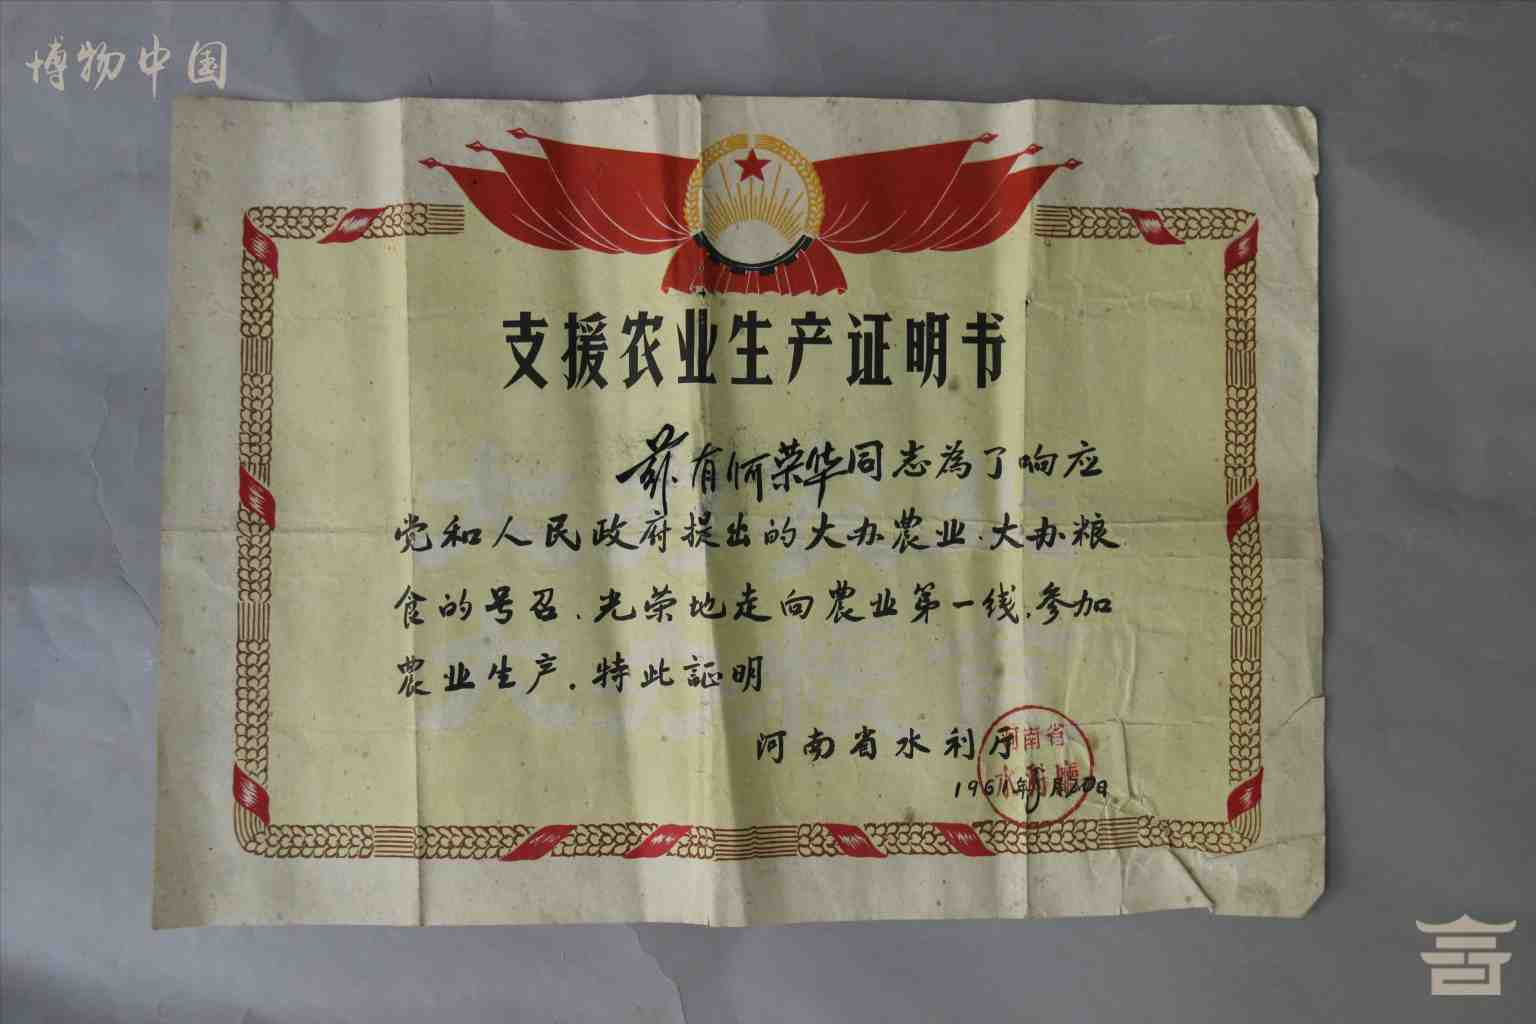 博物中国
支援农业生产证明书
兹有何荣华同志為了响应
党和人民政府提出的大办農业.大办粮
食的号召.光荣地走向農业第一线.参加
農业生产.特此証明
河南省水利厅
河南省
水利廳
1961年8月20日